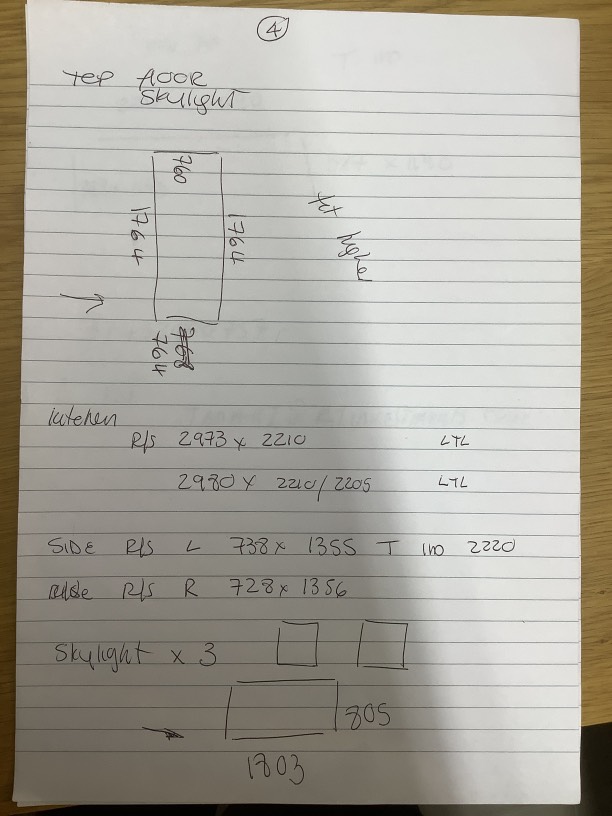 4
TOP FLOOR
SKYLIGHT
760
1764
1764
higher
764
Kitchen
R/S 2973 x 2210 LTL
2980 x 2210/2205 LTL
SIDE R/S L 738 x 1355 T 2220
R/S R 728 x 1356
Skylight x 3
805
1803